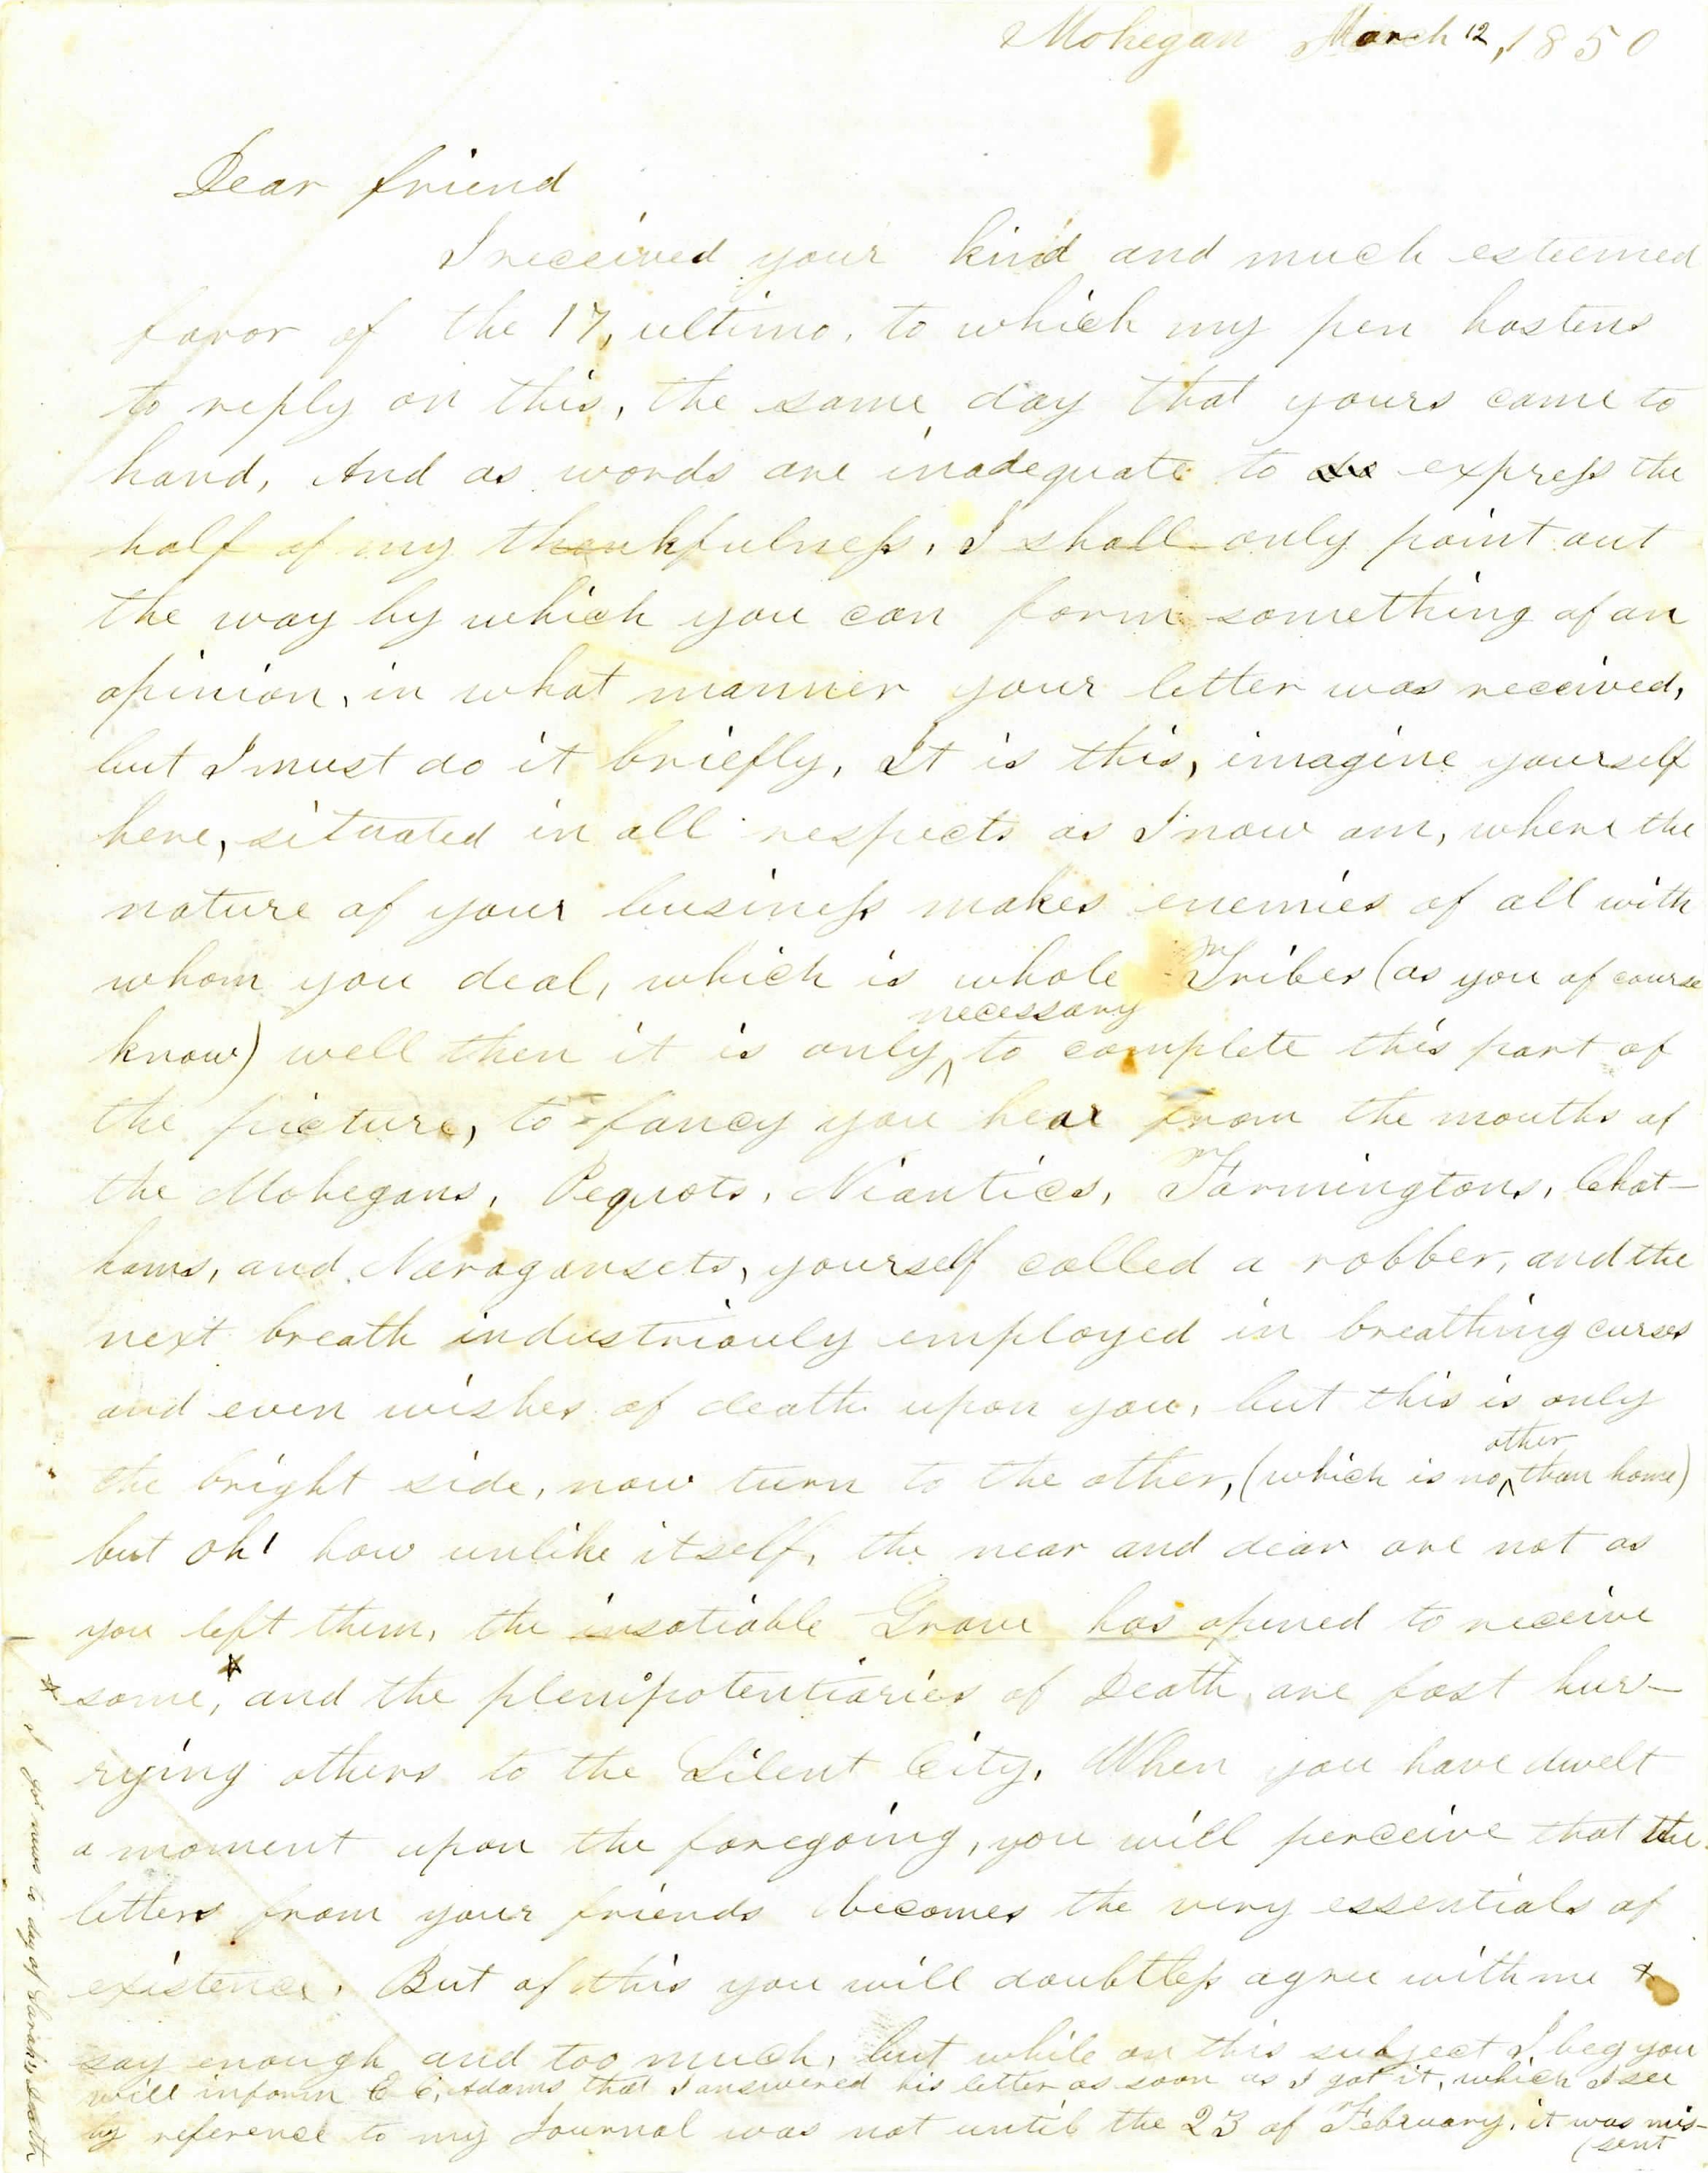 Mohegan March 12, 1850
Dear friend
I received your kind and much esteemed
favor of the 17, ultimo, to which my pen hastens
to reply on this, the same day that yours came to
hand, And as words are inadequate to do express the
half of my thankfulness, I shall only point out
the way by which you can form something of an
opinion, in what manner your letter was received,
but I must do it briefly, It is this, imagine yourself
here, situated in all respects as I now am, where the
nature of your business makes enemies of all with
whom you deal, which is whole Tribes (as you of course
know) well then it is only necessary to complete this part of
the picture, to fancy you hear from the mouths of
the Mohegans, Pequots, Niantics, Farmingtons, Chat-
hams, and Naragansets, yourself called a robber, and the
next breath industriouly employed in breathing curses
and even wishes of death upon you, but this is only
the bright side, now turn to the other, (which is no other than home)
but oh! how unlike itself, the near and dear are not as
you left them, the insatiable Grave has opened to receive
* some,* and the plenipotentiaries of Death, are fast hur-
rying others to the Silent City, When you have dwelt
a moment upon the foregoing, you will perceive that the
letters from your friends becomes the very essentials of
existence. But of this you will doubtless agree with me &
say enough and too much, but while on this subject I beg you
will inform E C, Adams that I answered his letter as soon as I got it, which I see
by reference to my Journal was not until the 23 of February, it was mis-
(sent
* I got news to day of Sarah's death